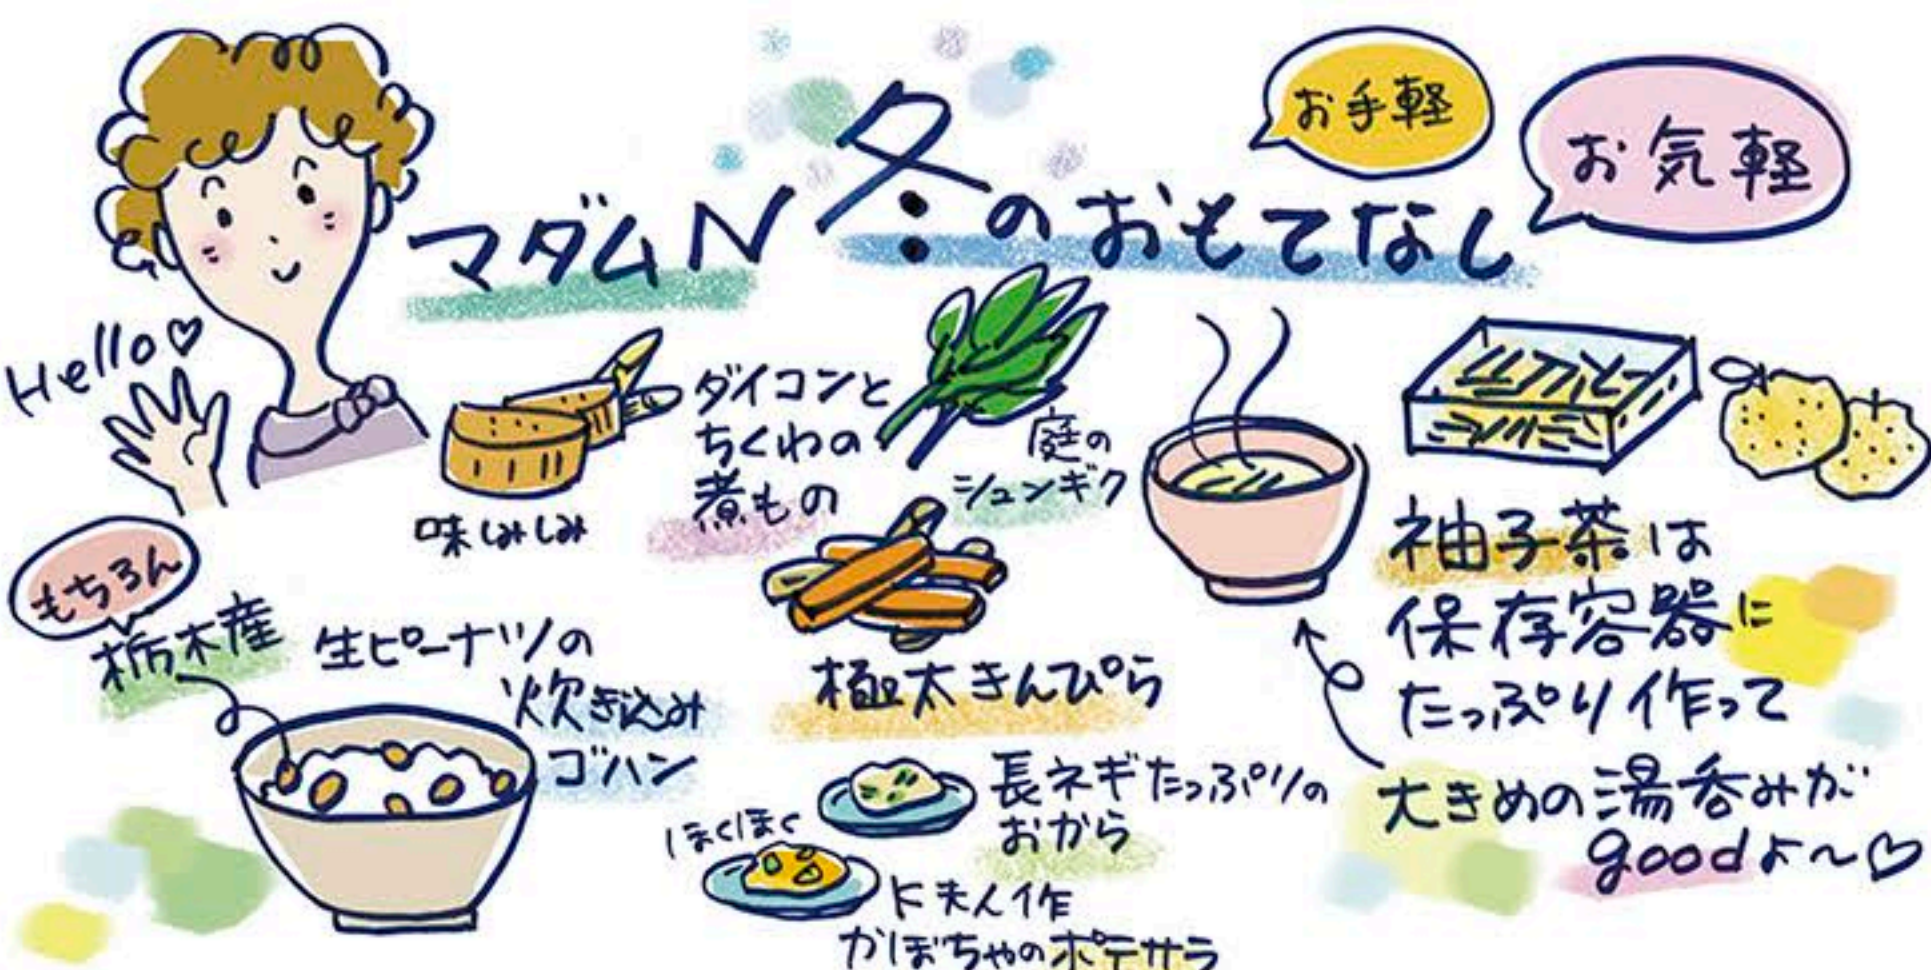 お手軽
お気軽
マダムN 冬のおもてなし
Hello♡
味しみしみ
ダイコンと
ちくわの
煮もの
庭の
シュンギク
もちろん
栃木産
生ピーナツの
炊き込み
ゴハン
極太きんぴら
長ネギたっぷりの
おから
ほくほく
K夫人作
かぼちゃのポテサラ
柚子茶は
保存容器に
たっぷり作って
大きめの湯呑みが
goodよ〜♡